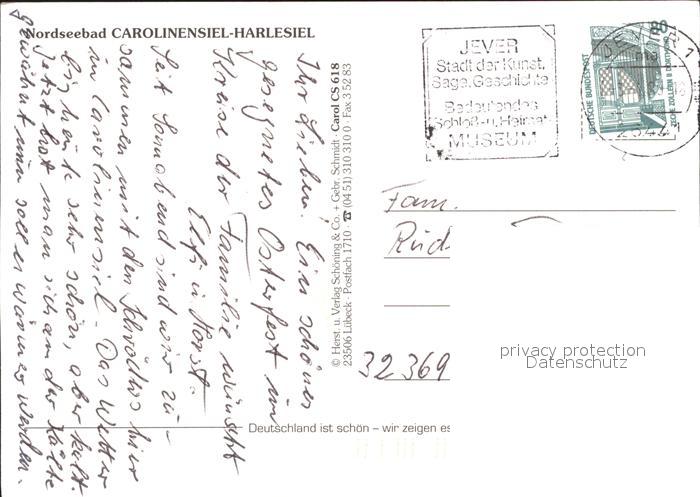 Nordseebad CAROLINENSIEL-HARLESIEL
Ihr Lieben! Ein schönes
gesegnetes Osterfest im
Kreise der Familie wünscht
Elfi u. Horst.
Seit Sonnabend sind wir zu-
sammen mit den hier
in Carolinensiel. Das Wetter
bis heute sehr schön, aber kalt.
Jetzt hat man sich an der Kälte
gewöhnt nun soll es wärmer werden.
© Herst. u. Verlag Schöning & Co. + Gebr. Schmidt · Carol CS 618
23506 Lübeck · Postfach 1710 · ☎ (04 51) 310 310 0 · Fax 3 52 83
JEVER
Stadt der Kunst,
Sage, Geschichte
Bedeutendes
Schloß- u. Heimat-
MUSEUM
80
DEUTSCHE BUNDESPOST
ZECHE ZOLLERN II DORTMUND
Fam.
Rüd
32369
privacy protection
Datenschutz
Deutschland ist schön – wir zeigen es